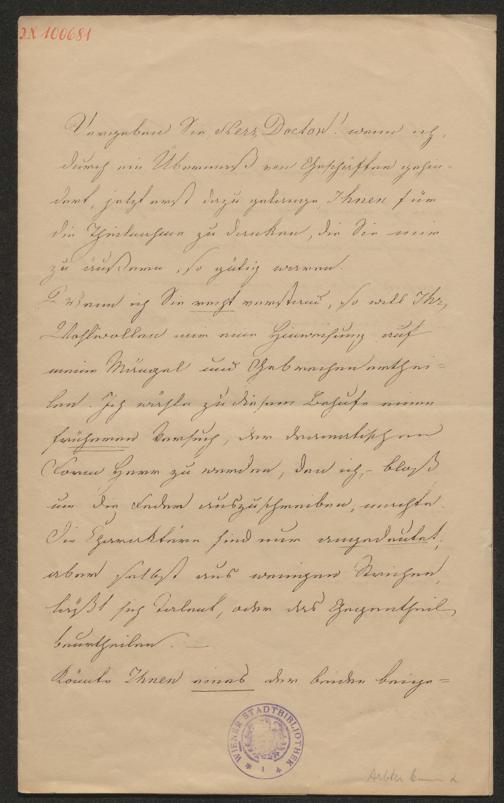 IN 100681
Vergeben Sie Herr Doctor! wenn ich,
durch ein Übermaß von Geschäften gehin-
dert, jetzt erst dazu gelange, Ihnen für
die Theilnahme zu danken, die Sie mir
zu äußern, so gütig waren.
Wenn ich Sie recht verstand, so will Ihr
Wohlwollen mir eine Hinweisung auf
meine Mängel und Gebrechen erthei-
len. Ich wähle zu diesem Behufe einen
früheren Versuch, der dramatischen
Form Herr zu werden, den ich, – bloß
um die Feder auszuschreiben, machte.
Die Charaktere sind nur angedeutet,
aber selbst aus wenigen Strichen,
läßt sich Talent, oder das Gegentheil
beurtheilen. –
Könnte Ihnen eines der beiden beige=
WIENER STADTBIBLIOTHEK